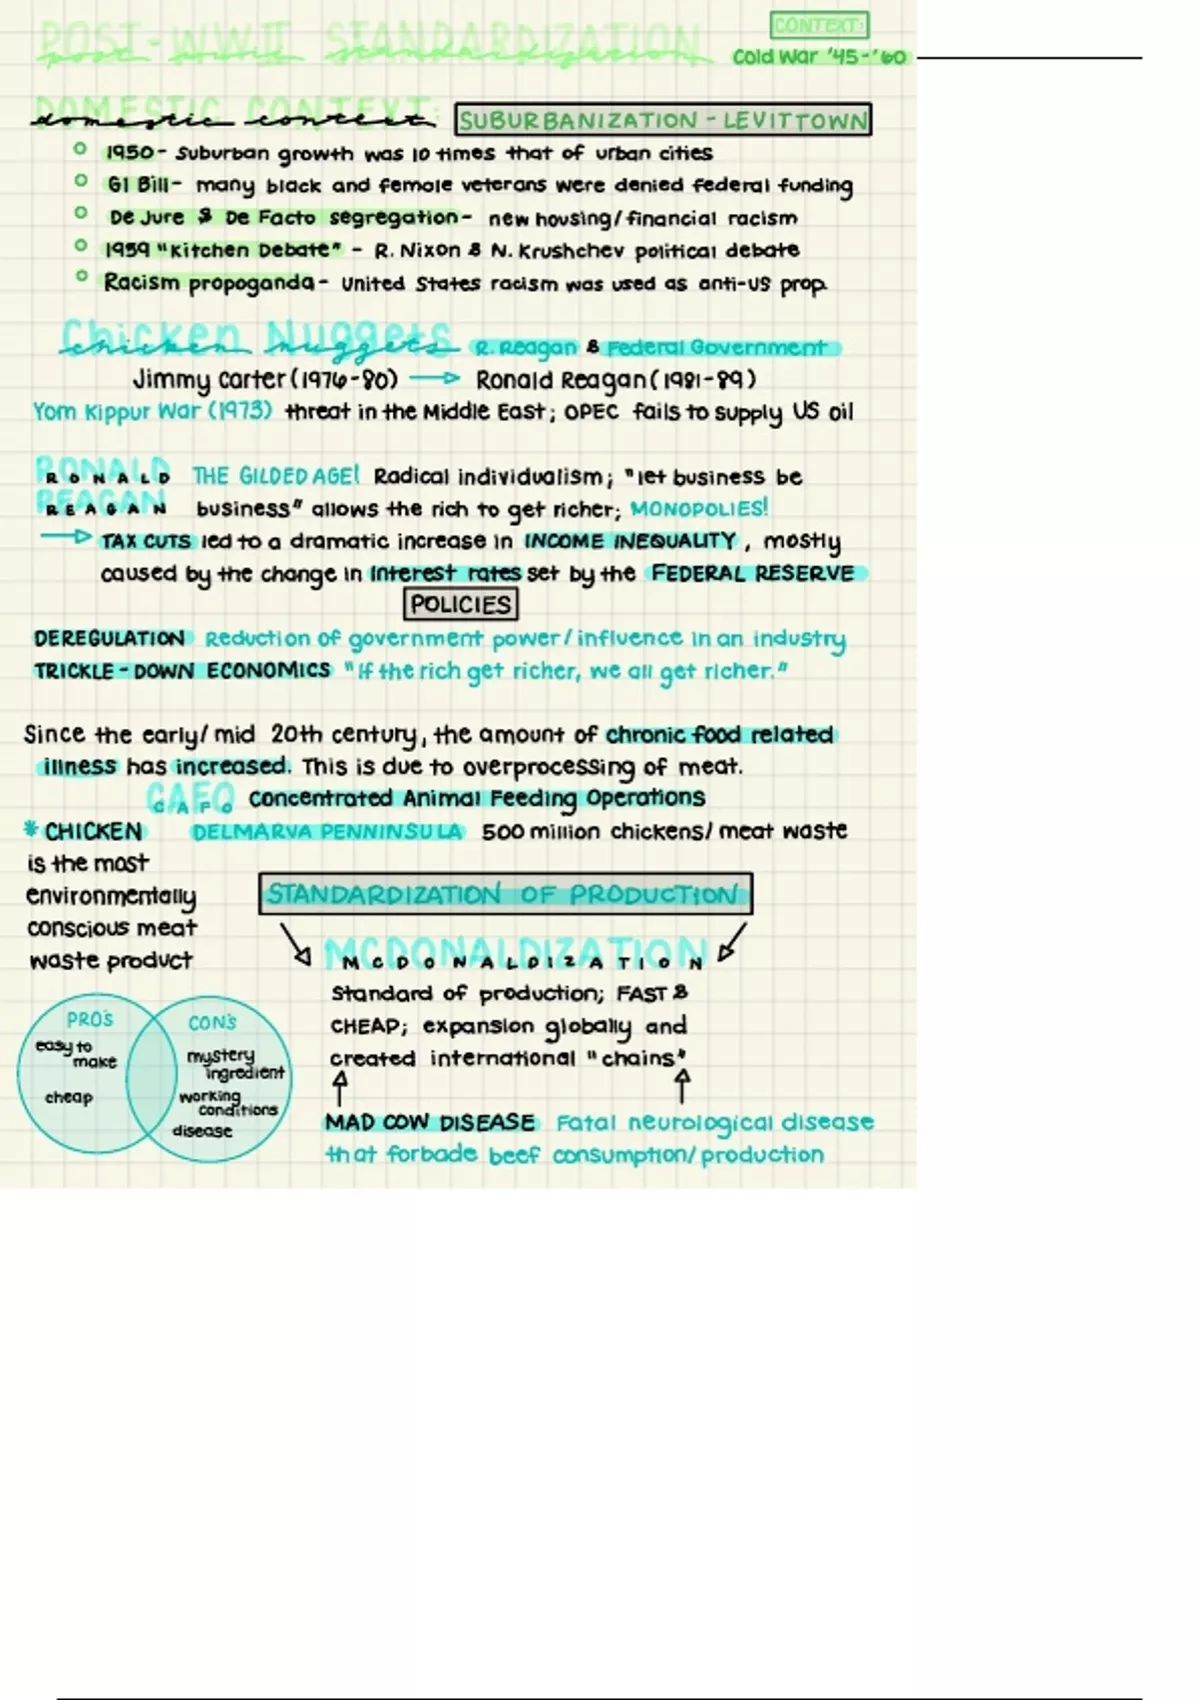 POST-WWII STANDARDIZATION
post wwii standardization
CONTEXT:
Cold War '45-'60
DOMESTIC CONTEXT:
domestic context
SUBURBANIZATION - LEVITTOWN
1950- Suburban growth was 10 times that of urban cities
GI Bill- many black and female veterans were denied federal funding
De Jure & De Facto segregation- new housing/financial racism
1959 "Kitchen Debate" - R. Nixon & N. Krushchev political debate
Racism propoganda- United States racism was used as anti-US prop.
Chicken Nuggets
chicken nuggets
R. Reagan & Federal Government
Jimmy Carter (1976-80) → Ronald Reagan (1981-89)
Yom Kippur War (1973) threat in the Middle East; OPEC fails to supply US oil
RONALD
RONALD THE GILDED AGE! Radical individualism; "let business be
REAGAN
REAGAN business" allows the rich to get richer; MONOPOLIES!
→ TAX CUTS led to a dramatic increase in INCOME INEQUALITY, mostly
caused by the change in interest rates set by the FEDERAL RESERVE
POLICIES
DEREGULATION Reduction of government power/influence in an industry
TRICKLE-DOWN ECONOMICS "If the rich get richer, we all get richer."
Since the early/mid 20th century, the amount of chronic food related
illness has increased. This is due to overprocessing of meat.
CAFO
CAFO Concentrated Animal Feeding Operations
* CHICKEN DELMARVA PENNINSULA 500 million chickens/meat waste
is the most
environmentally
conscious meat
waste product
STANDARDIZATION OF PRODUCTION
MCDONALDIZATION
MCDONALDIZATION
Standard of production; FAST &
CHEAP; expansion globally and
created international "chains"
PRO's
easy to
make
cheap
CON's
mystery
ingredient
working
conditions
disease
MAD COW DISEASE Fatal neurological disease
that forbade beef consumption/production